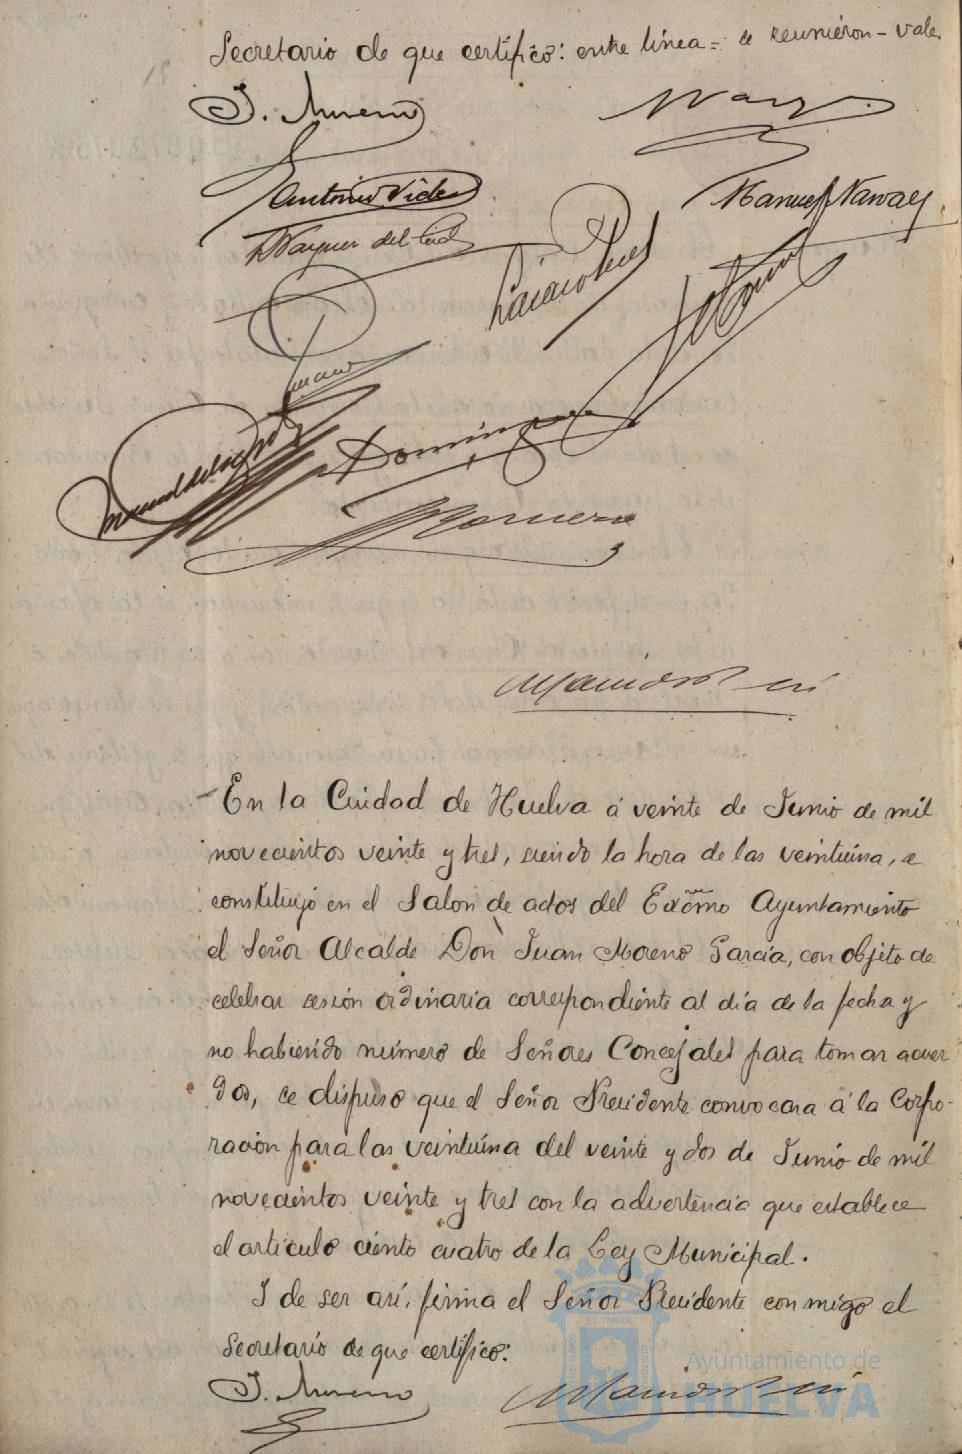 Secretario de que certifico: entre línea = se reunieron - vale.
J. Moreno
Antonio Vides
Vazquez del Cid
Manuel Narvaez
Domínguez
Romero
En la Cuidad de Huelva á veinte de Junio de mil
novecientos veinte y tres, siendo la hora de las veintiuna, se
constituyó en el Salon de actos del Excmo Ayuntamiento
el Señor Alcalde Don Juan Moreno García, con objeto de
celebrar sesión ordinaria correspondiente al día de la fecha y
no habiendo número de Señores Concejales para tomar acuer
dos, se dispuso que el Señor Presidente convocara á la Corpo-
ración para las veintiuna del veinte y dos de Junio de mil
novecientos veinte y tres con la advertencia que establece
el artículo ciento cuatro de la Ley Municipal.
I de ser así, firma el Señor Presidente conmigo el
Secretario de que certifico:
J. Moreno
Ayuntamiento de
HUELVA